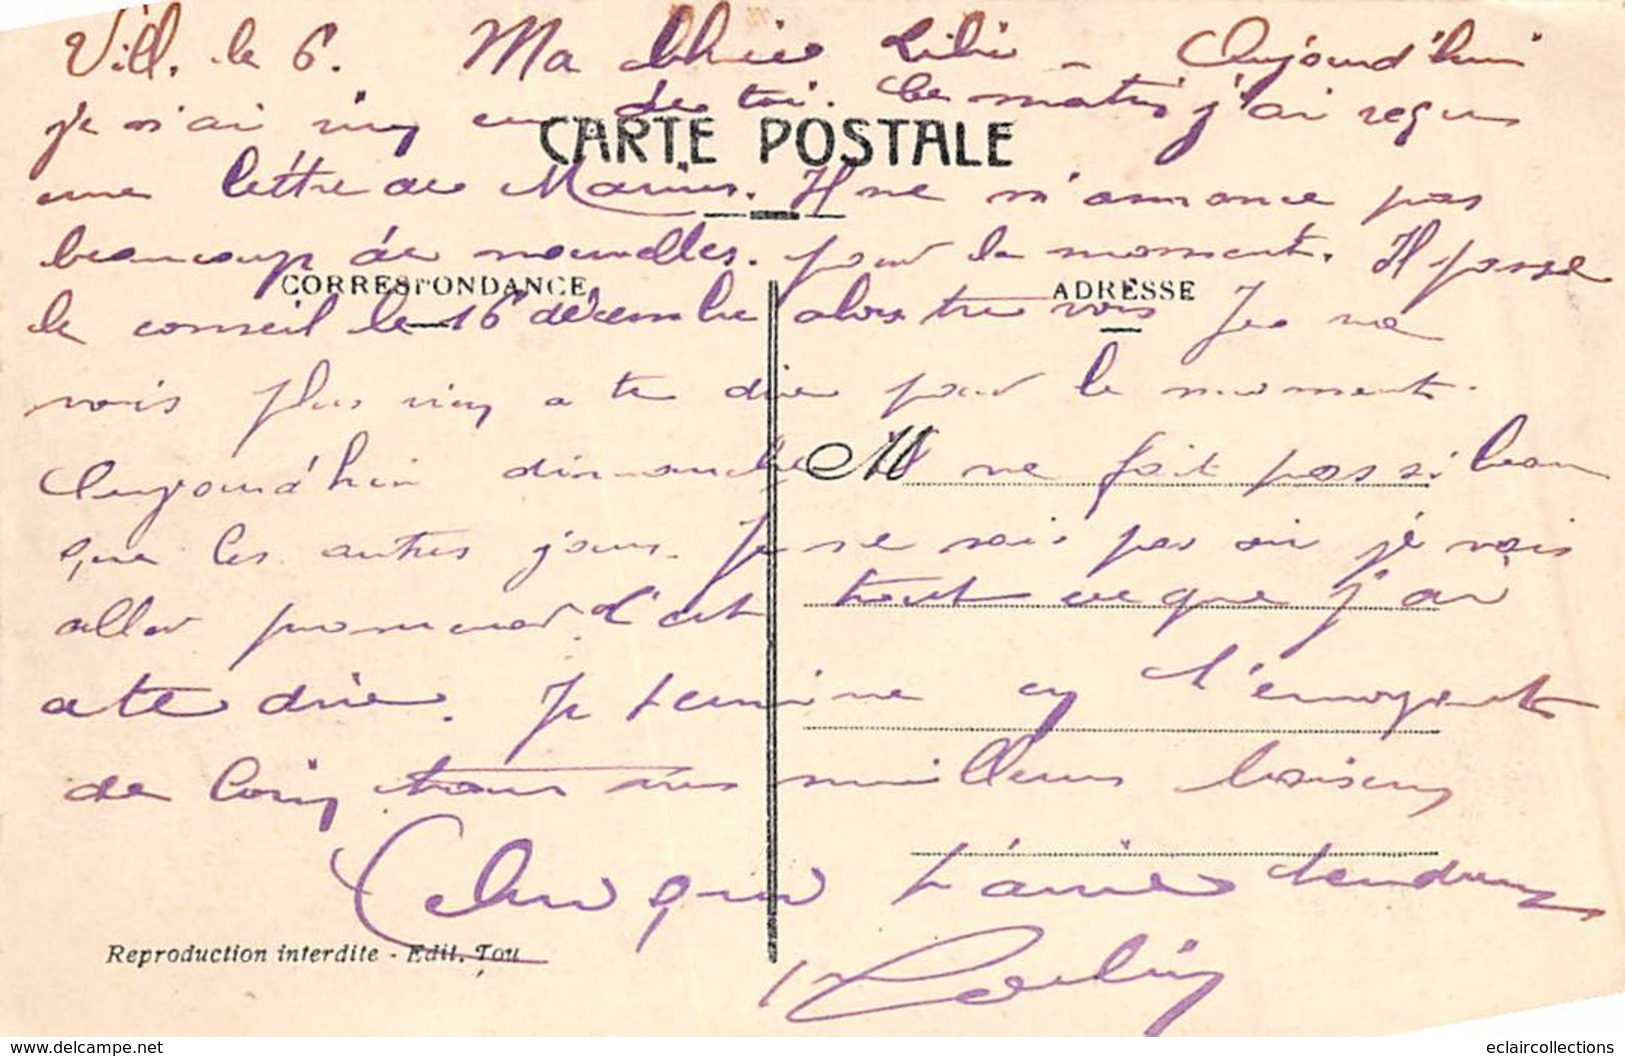 Vill. le 6. Ma chérie Lili - Aujourd'hui
je n'ai rien eu de toi. Ce matin j'ai reçu
CARTE POSTALE
une lettre de Marius. Il ne m'annonce pas
beaucoup de nouvelles. pour le moment. Il passe
CORRESPONDANCE
ADRESSE
le conseil le 16 décembre alors tu vois Je ne
vois plus rien a te dire pour le moment.
Aujourd'hui dimanche il ne fait pas si beau
M
que les autres jours. Je ne sais pas où je vais
aller promener. C'est tout ce que j'ai
a te dire. Je termine en t'envoyant
de loin tous mes meilleurs baisers
Celui qui t'aime tendrement
Reproduction interdite - Edit. Tou